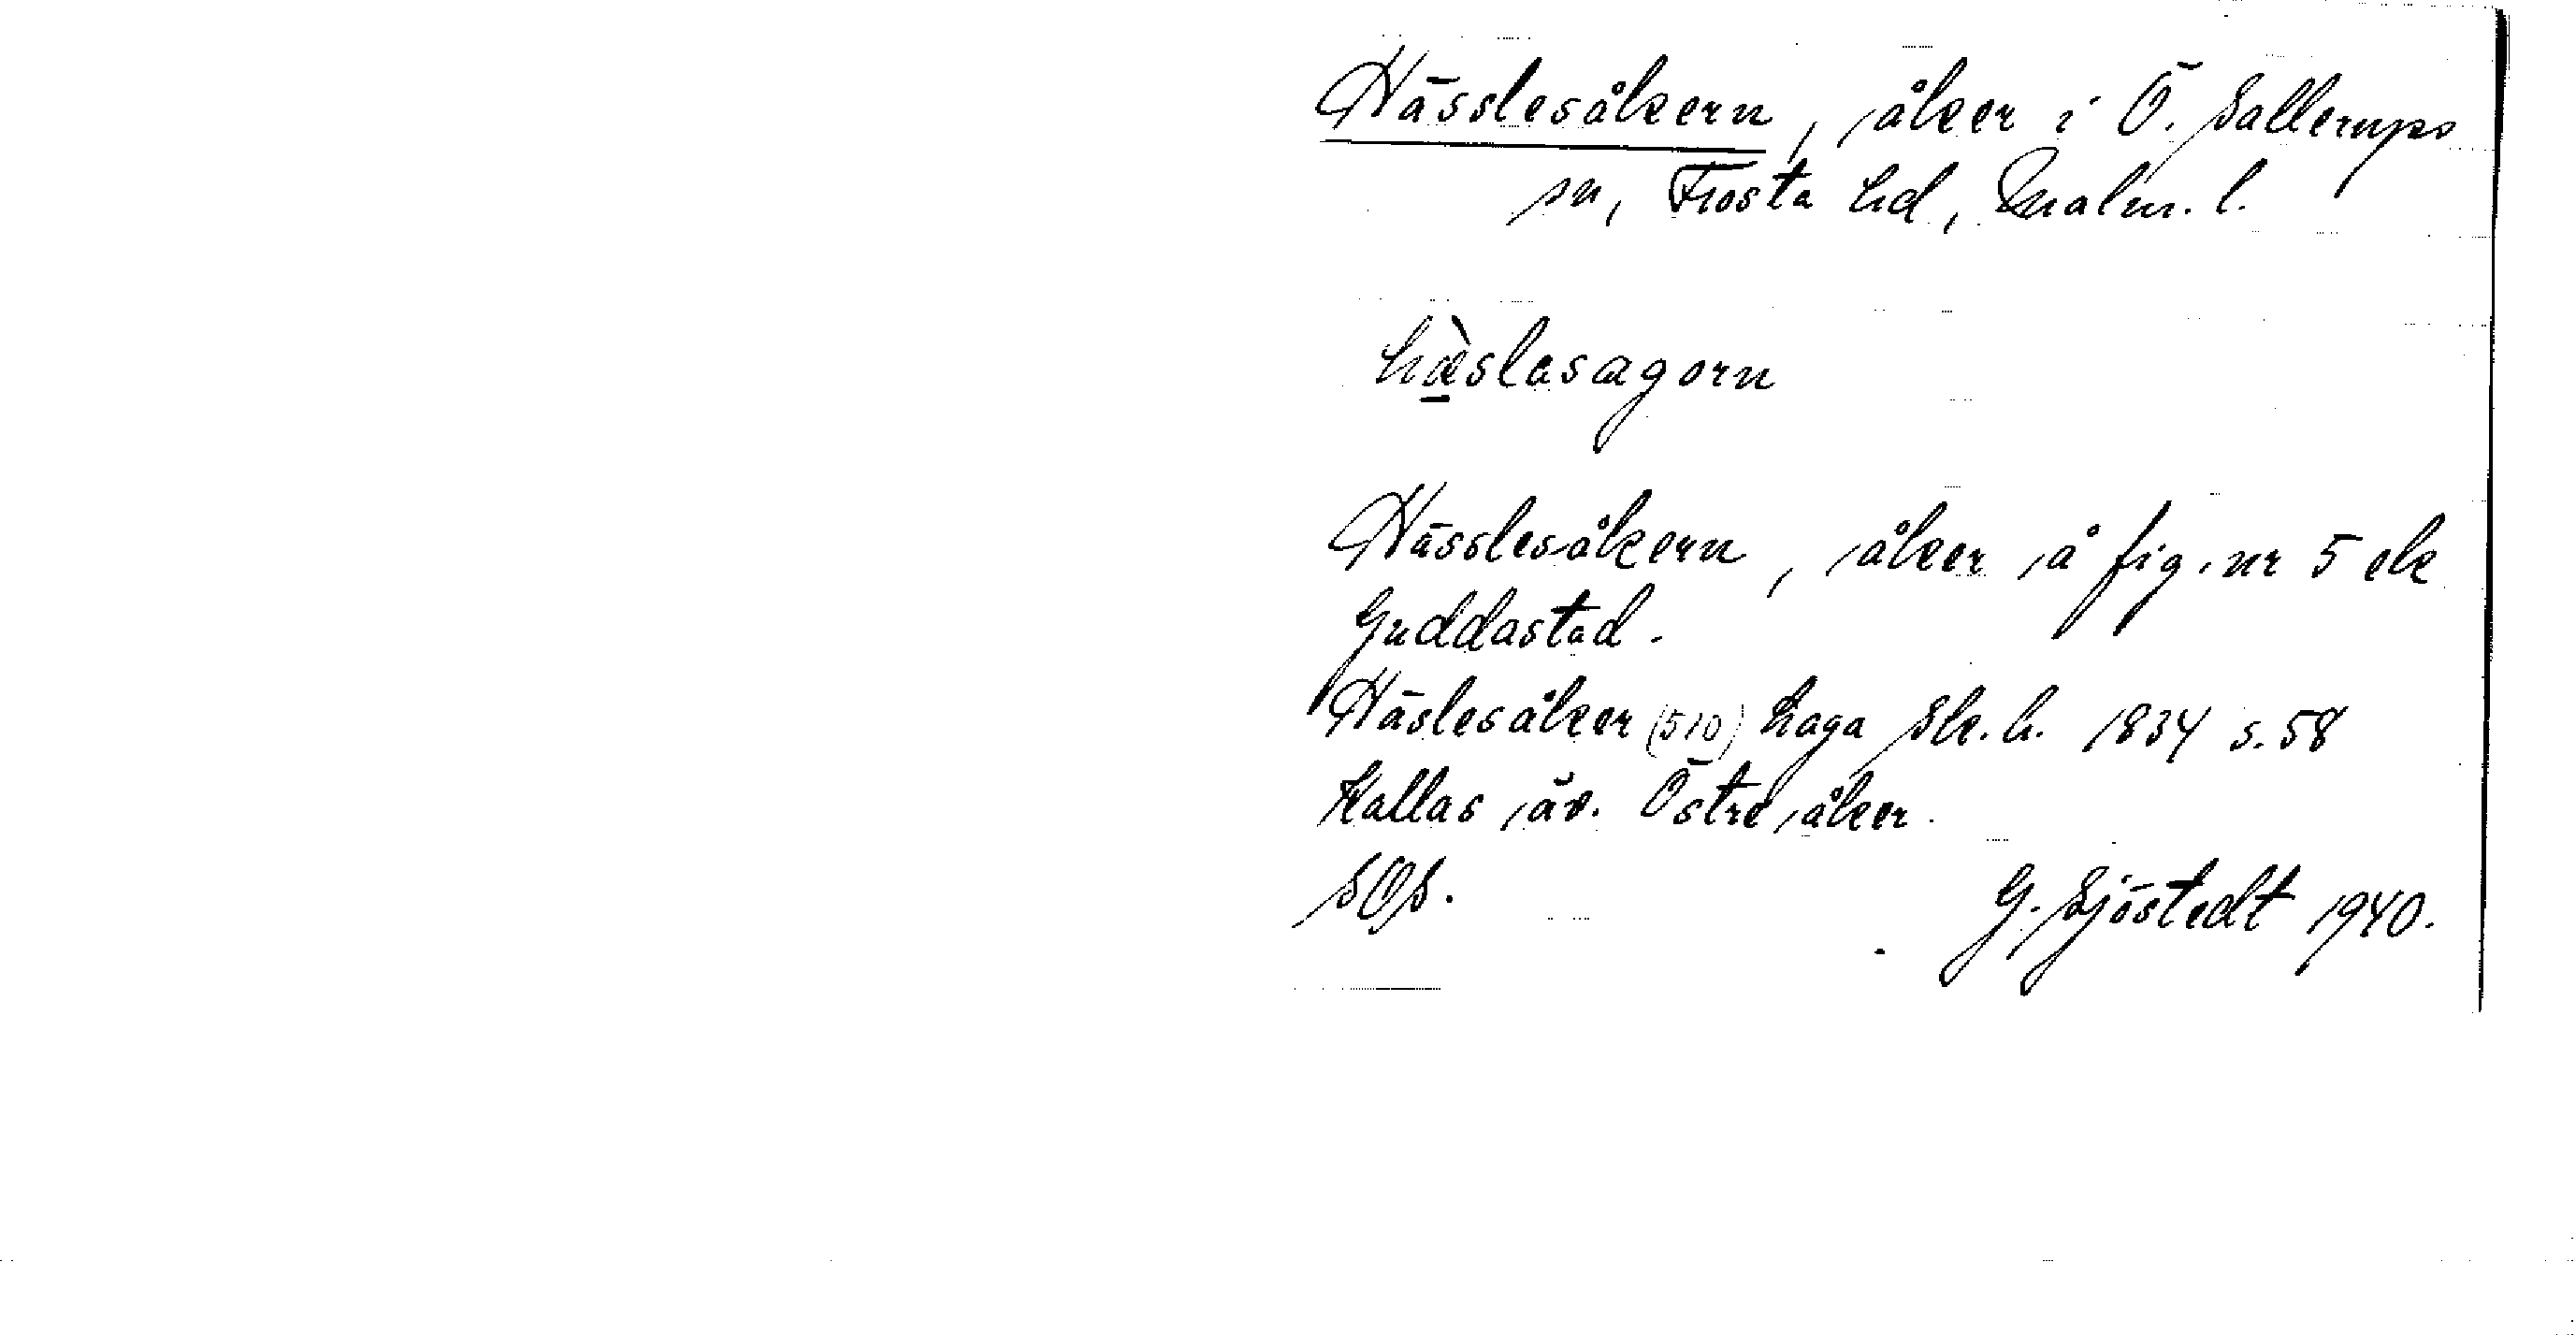 Hässlesåkern, åker i Ö. Sallerups
sn, Frosta hd, Malm. l.
hæ̀slasagorn
Hässlesåkern, åker å fig. nr 5 ek
Guddastad.
Häslesåker (510) Laga Sk. h. 1834 s. 58
Kallas äv. Östre åker.
SOS.
G. Sjöstedt 1940.